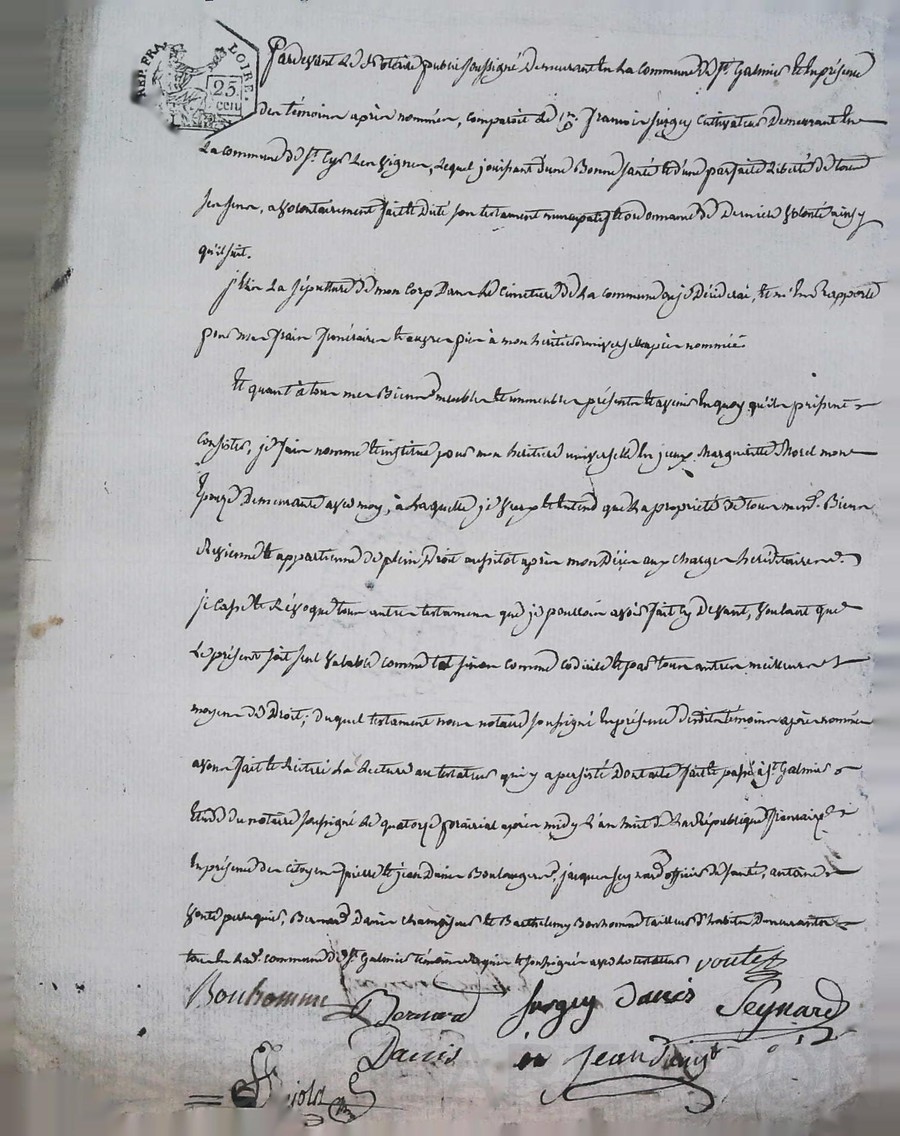 REP. FRA. LOIRE. 25 cen
Pardevant le Notaire public soussigné Demeurant en la commune de St. Galmier et en présence
des témoins après nommés, comparoit le françois surgey Cultivateur Demeurant en
la commune de St. Cyr les vignes, lequel jouissant d'une Bonne santé et d'une parfaite Liberté de tous
ses sens, a volontairement fait et Dicté son testament nuncupatif et ordonnance de Dernière volonté ainsy
qu'il suit.
j'élis la sépulture de mon Corp Dans le Cimetière de la commune ou je Décéderai, et m'en rapporte
pour mes frais funéraires et auvres pies à mon héritière universelle après nommée.
Et quant à tous mes Biens meubles et immeubles présents et avenir en quoy qu'ils puissent
consister, je fais nomme et institue pour mon héritière universelle en iceux, Marguerite Morel mon
Epouze Demeurante avec moy, à laquelle je veux et entend que la propriété de tous mesd. Biens
vienne et appartienne de plein Droit aussitot après mon Décès aux charges héréditaires.
je casse et révoque tous autres testaments que je pourrois avoir fait cy Devant, voulant que
le présent soit seul valable comme tel sinon comme codicile et par tous autres meilleurs
moyens de Droit; duquel testament nous notaire soussigné En présence desdits témoins après nommés
avons fait et réitéré la lecture au testateur qui y a persisté Dont acte fait et passé à St. Galmier
Etude du notaire soussigné le quatorze prairial après midy l'an huit de la République française
En présence des Citoyens pierre et jean Davis Boulangers, jacques seynard officier de santé, antoine
voute perruquier, Bernard Davis chamoiseur et Barthelemy Bonhomme tailleur d'habits Demeurants
tous en lad. commune de St. Galmier témoins requis et soussignés avec le testateur voute
Bonhomme Bernard surgey Davis Seynard
Davis jean Davis